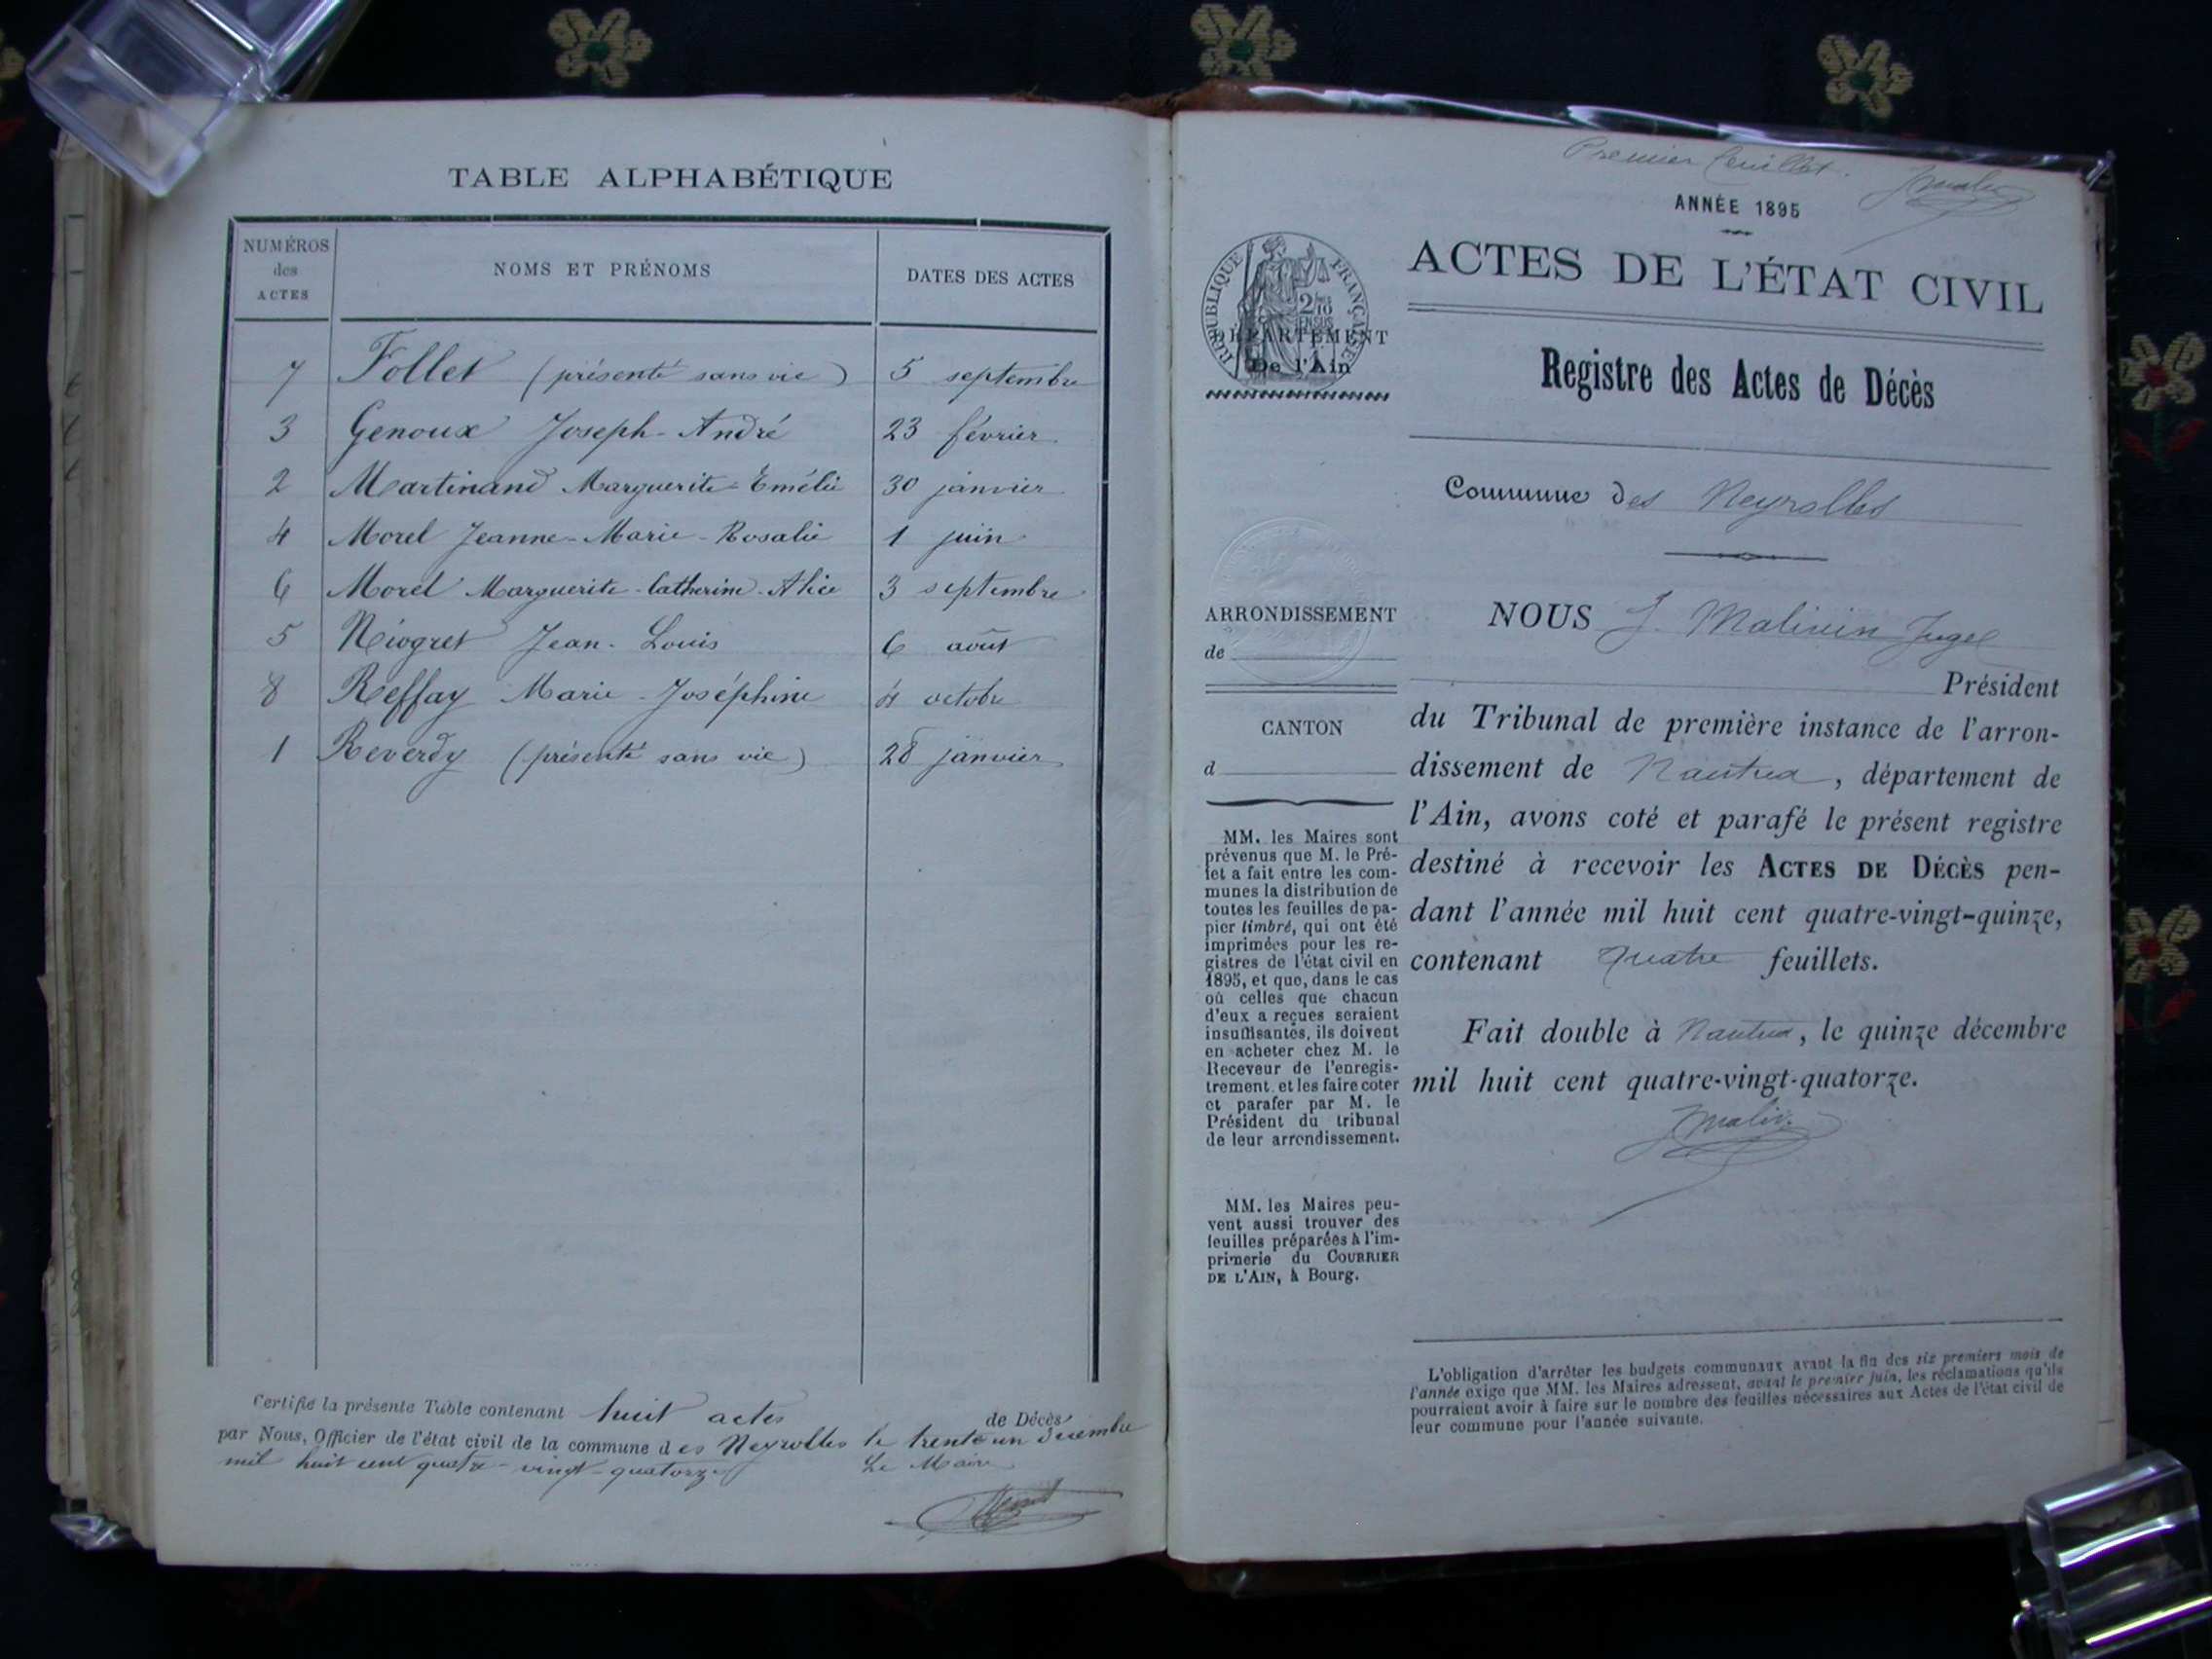 TABLE ALPHABÉTIQUE
NUMÉROS
des
ACTES
NOMS ET PRÉNOMS
DATES DES ACTES
7 Follet (présenté sans vie) 5 septembre
3 Genoux Joseph-André 23 février
2 Martinand Marguerite-Emélie 30 janvier
4 Morel Jeanne-Marie-Rosalie 1 juin
6 Morel Marguerite-Catherine-Alice 3 septembre
5 Niogret Jean-Louis 6 août
8 Reffay Marie-Joséphine 4 octobre
1 Reverdy (présenté sans vie) 28 janvier
Certifié la présente Table contenant huit actes de Décès
par Nous, Officier de l'état civil de la commune des Neyrolles le trente un décembre
mil huit cent quatre-vingt-quatorze
Le Maire
Premier feuillet.
ANNÉE 1895
ACTES DE L'ÉTAT CIVIL
RÉPUBLIQUE FRANÇAISE
2/10
EN SUS
DÉPARTEMENT
De l'Ain
Registre des Actes de Décès
Commune des Neyrolles
ARRONDISSEMENT
de
CANTON
d
MM. les Maires sont
prévenus que M. le Pré-
fet a fait entre les com-
munes la distribution de
toutes les feuilles de pa-
pier timbré, qui ont été
imprimées pour les re-
gistres de l'état civil en
1895, et que, dans le cas
où celles que chacun
d'eux a reçues seraient
insuffisantes, ils doivent
en acheter chez M. le
Receveur de l'enregis-
trement et les faire coter
et parafer par M. le
Président du tribunal
de leur arrondissement.
MM. les Maires peu-
vent aussi trouver des
feuilles préparées à l'im-
primerie du COURRIER
DE L'AIN, à Bourg.
NOUS J. Malivin Juge
Président
du Tribunal de première instance de l'arron-
dissement de Nantua, département de
l'Ain, avons coté et parafé le présent registre
destiné à recevoir les ACTES DE DÉCÈS pen-
dant l'année mil huit cent quatre-vingt-quinze,
contenant quatre feuillets.
Fait double à Nantua, le quinze décembre
mil huit cent quatre-vingt-quatorze.
L'obligation d'arrêter les budgets communaux avant la fin des six premiers mois de
l'année exige que MM. les Maires adressent, avant le premier juin, les réclamations qu'ils
pourraient avoir à faire sur le nombre des feuilles nécessaires aux Actes de l'état civil de
leur commune pour l'année suivante.